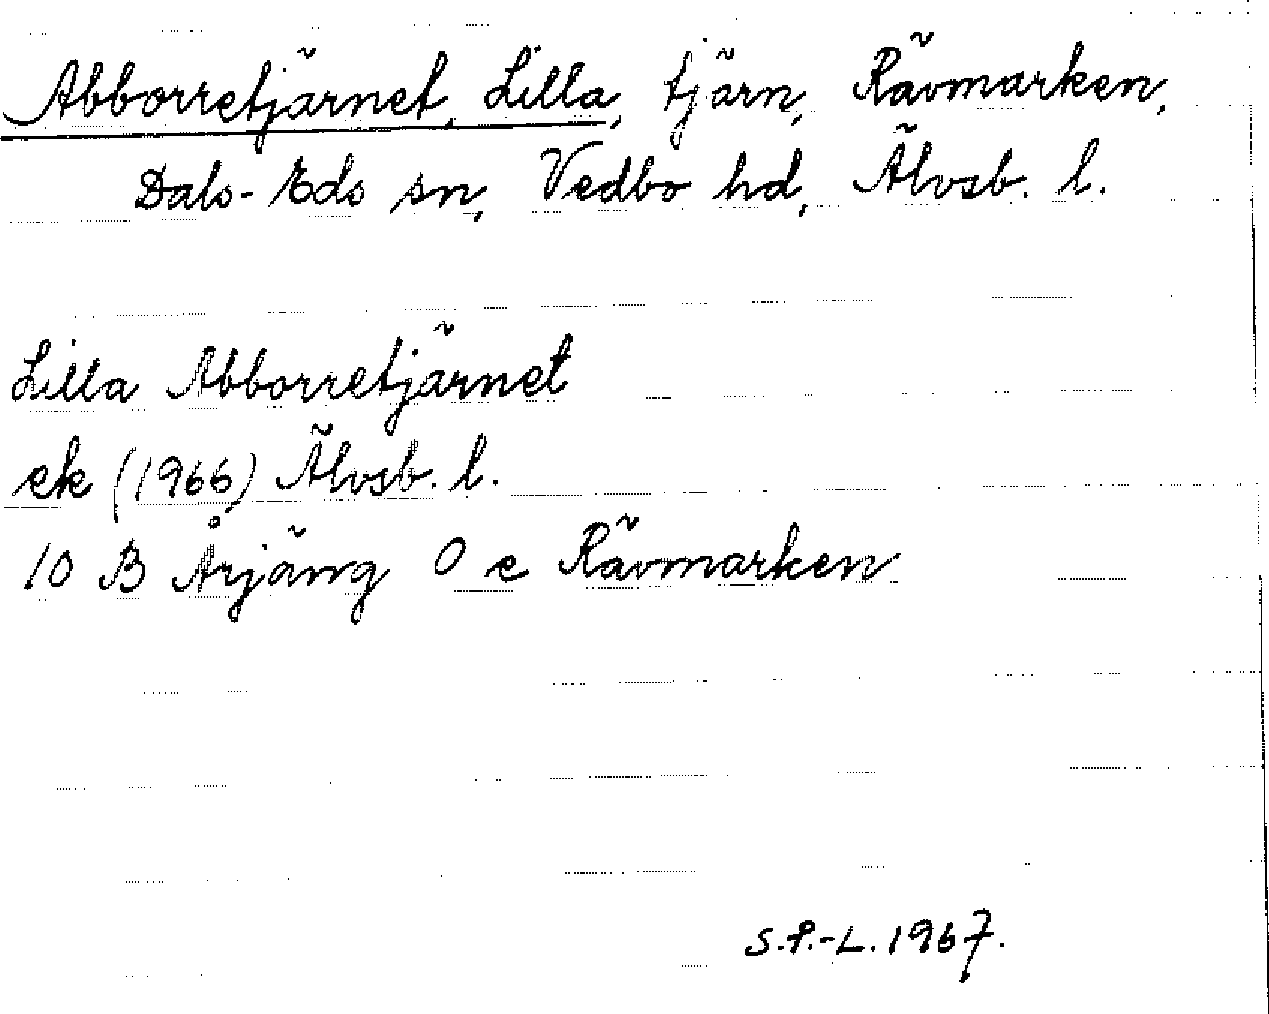 Abborretjärnet, Lilla, tjärn, Rävmarken,
Dals-Eds sn, Vedbo hd, Älvsb. l.
Lilla Abborretjärnet
ek (1966) Älvsb. l.
10 B Årjäng 0 e Rävmarken
S.P.-L. 1967.